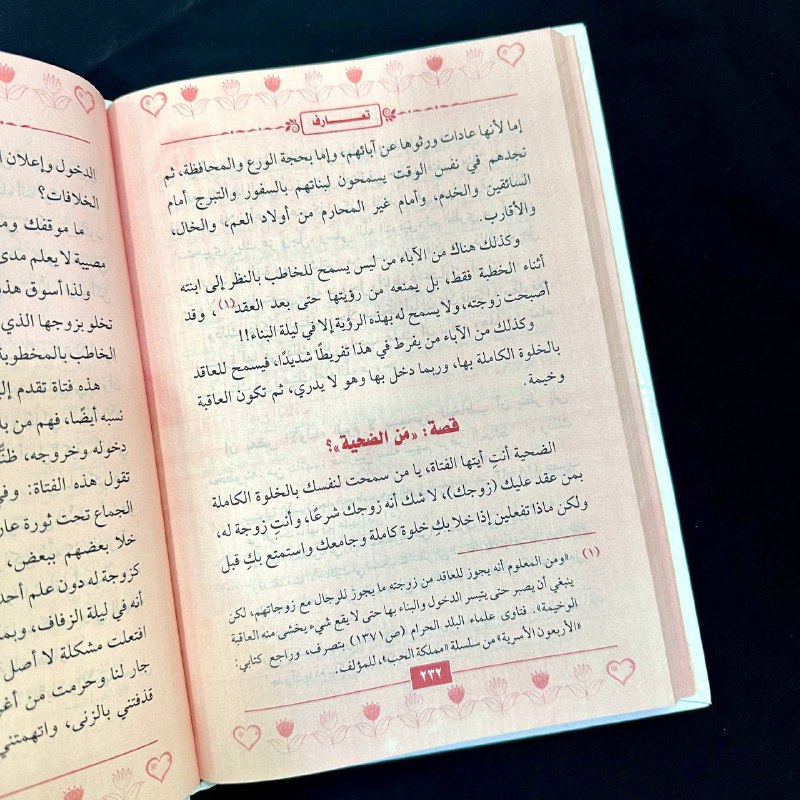 تعارف
إما لأنها عادات ورثوها عن آبائهم، وإما بحجة الورع والمحافظة، ثم
نجدهم في نفس الوقت يسمحون لبناتهم بالسفور والتبرج أمام
السائقين والخدم، وأمام غير المحارم من أولاد العم، والخال،
والأقارب.
وكذلك هناك من الآباء من ليس يسمح للخاطب بالنظر إلى ابنته
أثناء الخطبة فقط، بل يمنعه من رؤيتها حتى بعد العقد(١)، وقد
أصبحت زوجته، ولا يسمح له بهذه الرؤية إلا في ليلة البناء!!
وكذلك من الآباء من يفرط في هذا تفريطًا شديدًا، فيسمح للعاقد
بالخلوة الكاملة بها، وربما دخل بها وهو لا يدري، ثم تكون العاقبة
وخيمة.
قصة: «مَن الضحية»؟
الضحية أنتِ أيتها الفتاة، يا من سمحت لنفسك بالخلوة الكاملة
بمن عقد عليك (زوجك)، لا شك أنه زوجك شرعًا، وأنتِ زوجة له،
ولكن ماذا تفعلين إذا خلا بكِ خلوة كاملة وجامعك واستمتع بكِ قبل
(١) «ومن المعلوم أنه يجوز للعاقد من زوجته ما يجوز للرجال مع زوجاتهم، لكن
ينبغي أن يصبر حتى يتيسر الدخول والبناء بها حتى لا يقع شيء يخشى منه العاقبة
الوخيمة». فتاوى علماء البلد الحرام (ص١٣٧١) بتصرف، وراجع كتابي:
«الأربعون الأسرية» من سلسلة «مملكة الحب»، للمؤلف.
٢٣٢
الدخول وإعلان
الخلافات؟
ما موقفك
مصيبة لا يعلم مدى
ولذا أسوق هذه
تخلو بزوجها الذي
الخاطب بالمخطوبة
هذه فتاة تقدم
نسبه أيضًا، فهم من
دخوله وخروجه،
تقول هذه الفتاة: وفي
الجماع تحت ثورة
خلا بعضهم ببعض،
كزوجة له دون علم أحد
أنه في ليلة الزفاف،
افتعلت مشكلة لا أصل
جار لنا وحرمت من
قذفتني بالزنى، واتهمتني